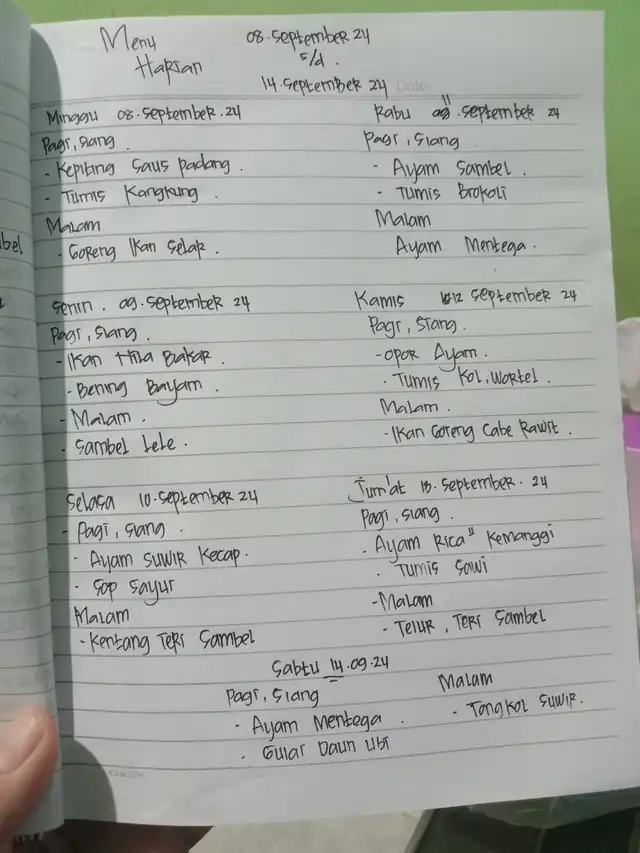 Menu Harian
08.September 24
s/d.
14.September 24
Date
Minggu 08.September.24
Pagi, siang.
- Kepiting Saus Padang.
- Tumis Kangkung.
Malam
- Goreng Ikan Selar.
Senin. 09.September 24
Pagi, siang.
- Ikan Nila Bakar.
- Bening Bayam.
- Malam.
- Sambel Lele.
Selasa 10.September 24
- Pagi, siang.
- Ayam Suwir Kecap.
- Sop Sayur
Malam
- Kentang Teri Sambel
Rabu 11.September 24
Pagi, siang.
- Ayam Sambel.
- Tumis Brokoli
Malam
Ayam Mentega.
Kamis 12 September 24
Pagi, Siang.
- Opor Ayam.
- Tumis Kol, Wortel.
Malam.
- Ikan Goreng Cabe Rawit.
Jum'at 13.September.24
Pagi, siang.
- Ayam Rica" Kemanggi
- Tumis Sawi
- Malam
- Telur, Teri Sambel
Sabtu 14.09.24
Pagi, Siang
- Ayam Mentega.
- Gular Daun Ubi
Malam
- Tongkol Suwir.
bel